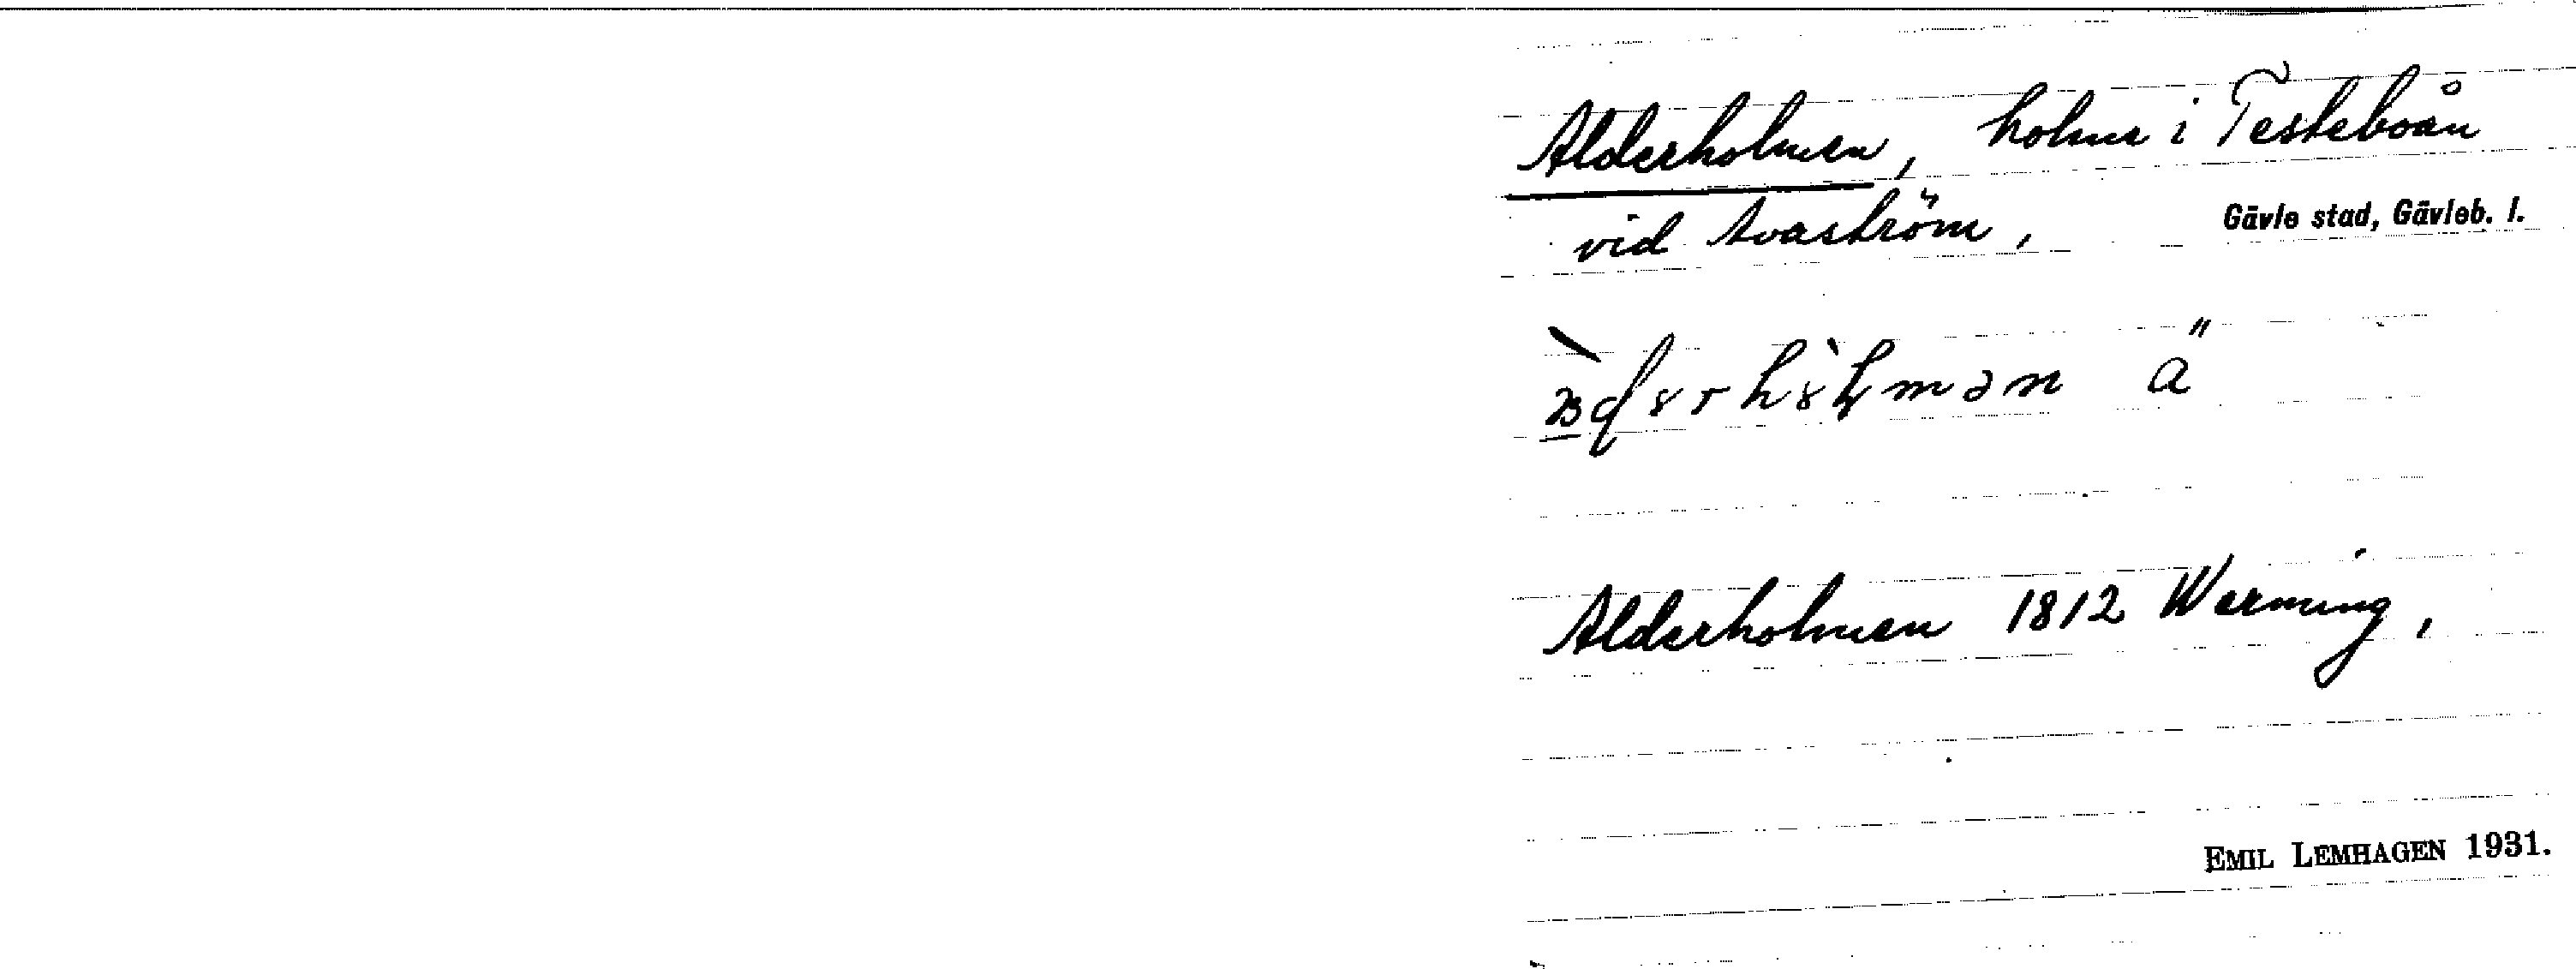 Alderholmen, holme i Testeboån
vid Avaström,
Gävle stad, Gävleb. l.
Alderholmen 1812 Werming,
EMIL LEMHAGEN 1931.